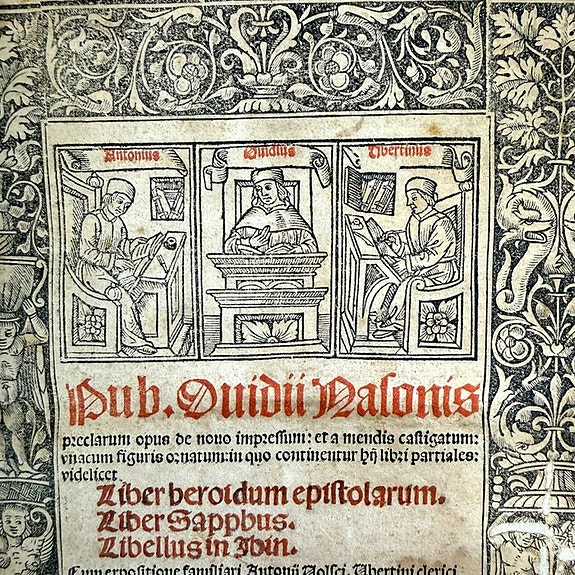 Antonius
Ouidius
Ubertinus
Pub. Ouidii Nasonis
preclarum opus de nouo impressum: et a mendis castigatum:
vnacum figuris ornatum: in quo continentur hij libri partiales:
videlicet
Liber heroidum epistolarum.
Liber Sapphus.
Libellus in Ibin.
Cum expositione familiari Antonij Volsci, Ubertini clerici